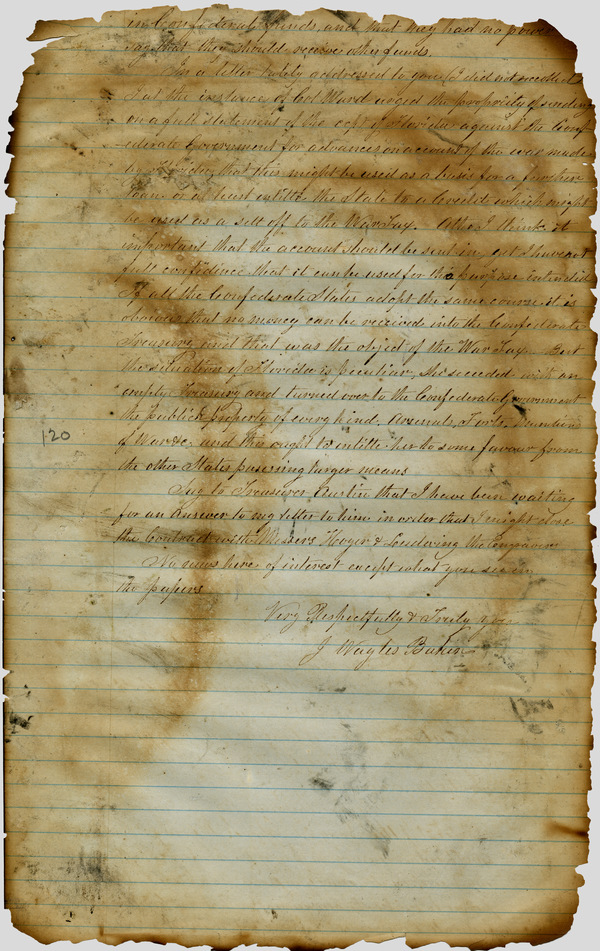 in Confederate funds, and that they had no power
say that they should receive other funds.
In a letter lately addressed to you (I did not recollect
I at the instance of Col Ward urged the propriety of sending
on a full statement of the acpt of Florida against the Conf-
ederate Government for advances on account of the war made
by Florida, that this might be used as a basis for a further
loan or at least entitle the State to a Credit which might
be used as a sett off to the War Tax. I think it
important that the account should be sent in, but I have not
full confidence that it can be used for the purpose intended
If all the Confederate States adopt the same course it is
obvious that no money can be received into the Confederate
Treasury and that was the object of the War Tax. But
the situation of Florida is peculiar, she seceded with an
empty Treasury and turned over to the Confederate Government
the publick property of every kind, Arsenals, Forts, Munitions
of War &c, and this ought to entitle her to some favour from
the other States possessing larger means
120
Say to Treasurer Austin that I have been waiting
for an answer to my letter to him in order that I might close
the Contract with Messrs Hoyer & Ludwig the engravers
No news here of interest except what you see in
the papers
Very Respectfully & Truly yours
J Wayles Baker